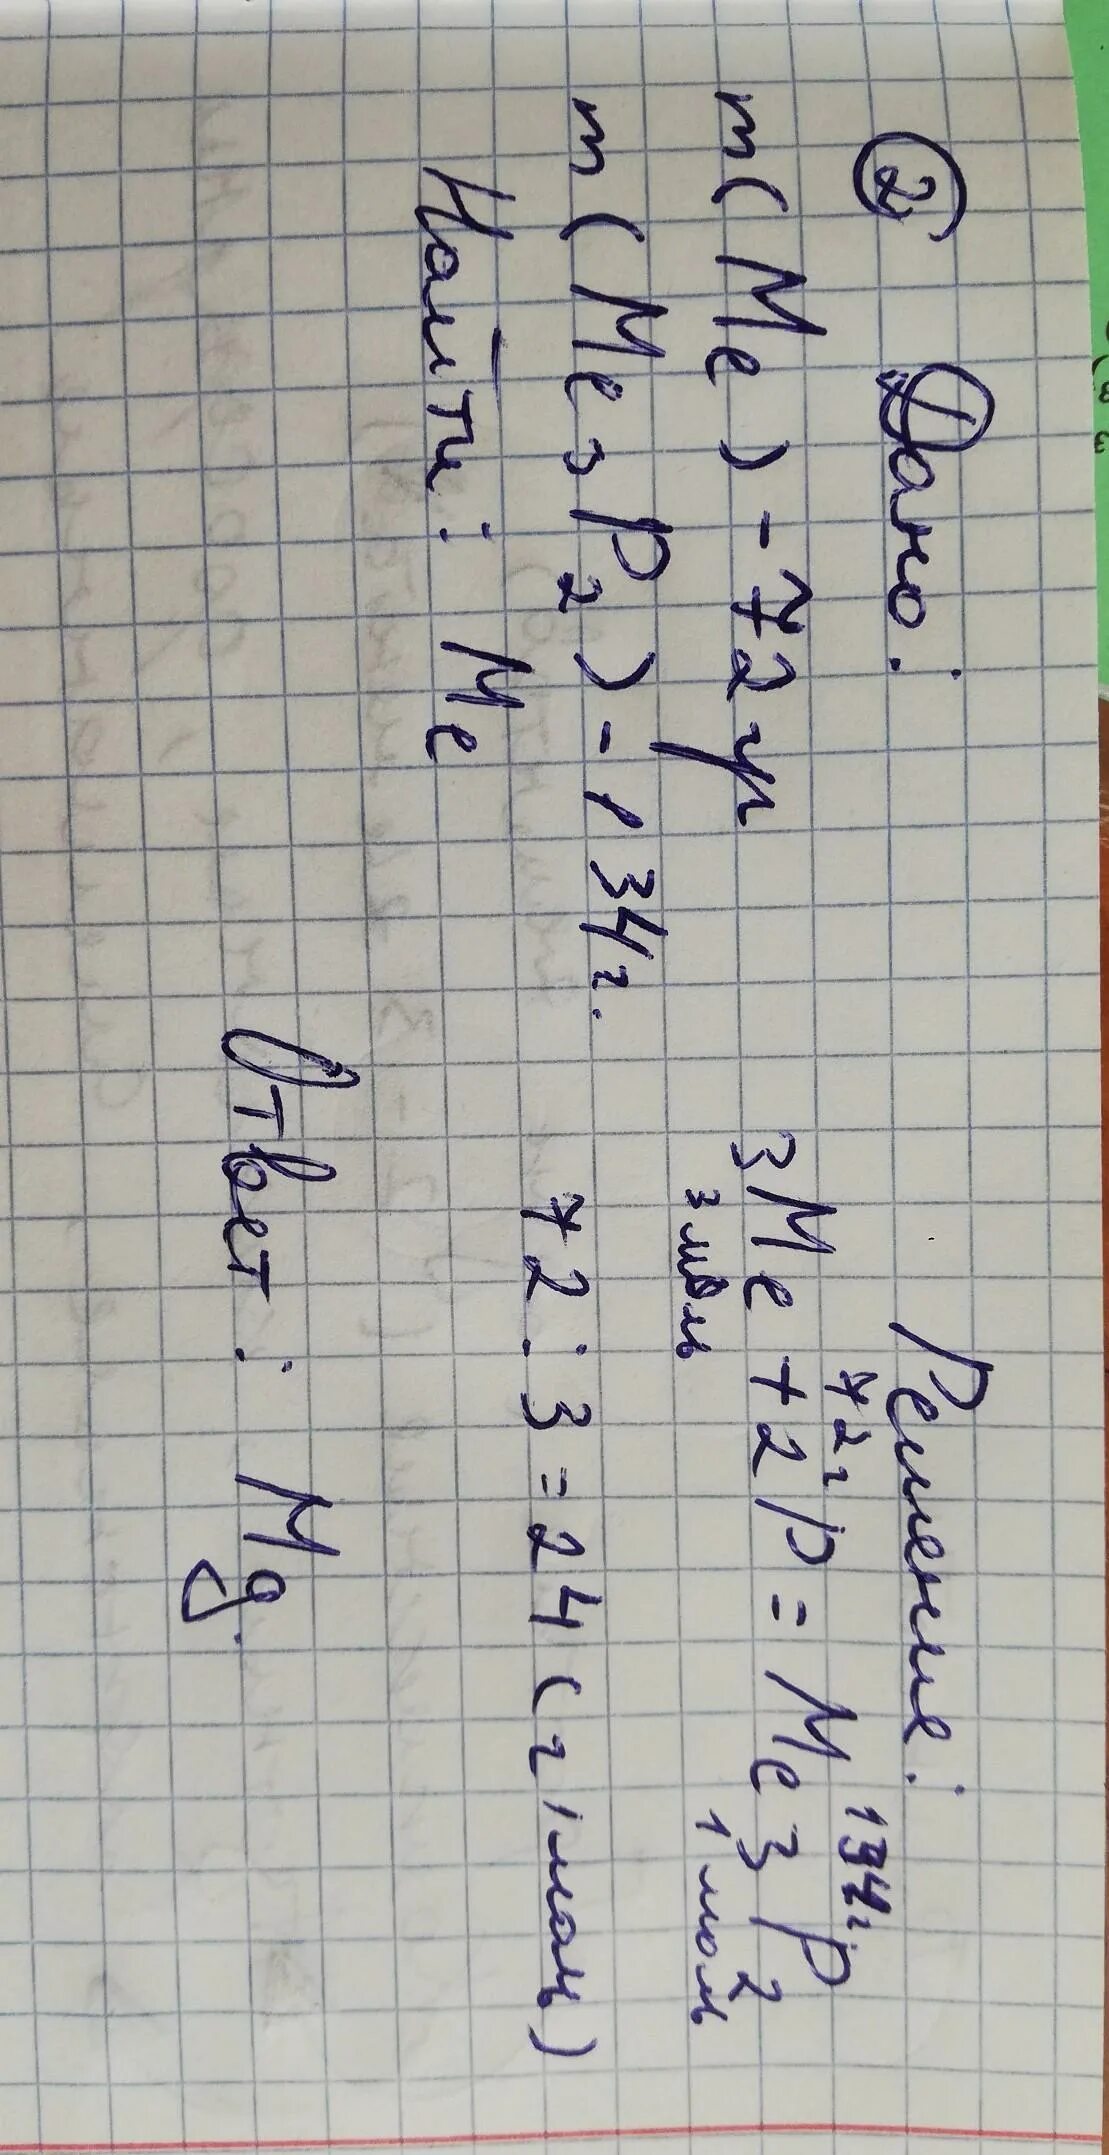 ② Дано:
m(Me) - 72 гр
m(Me3P2) - 134г.
Найти: Me
Решение:
72г 134г.
3Me + 2P = Me3P2
3 моль 1 моль
72 : 3 = 24 (г/моль)
Ответ: Mg.